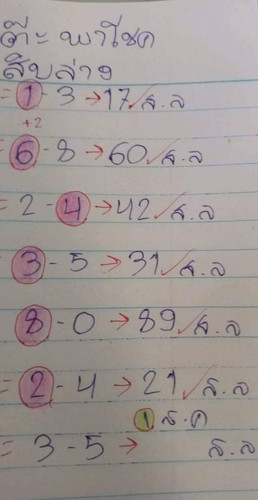 ต๊ะ พาโชค
สิบล่าง
= 1 - 3 → 17 ✓ ส.ล
+2
= 6 - 8 → 60 ✓ ส.ล
= 2 - 4 → 42 ✓ ส.ล
= 3 - 5 → 31 ✓ ส.ล
8 - 0 → 89 ✓ ส.ล
= 2 - 4 → 21 ✓ ส.ล
1 ส.ค
= 3 - 5 → ส.ล